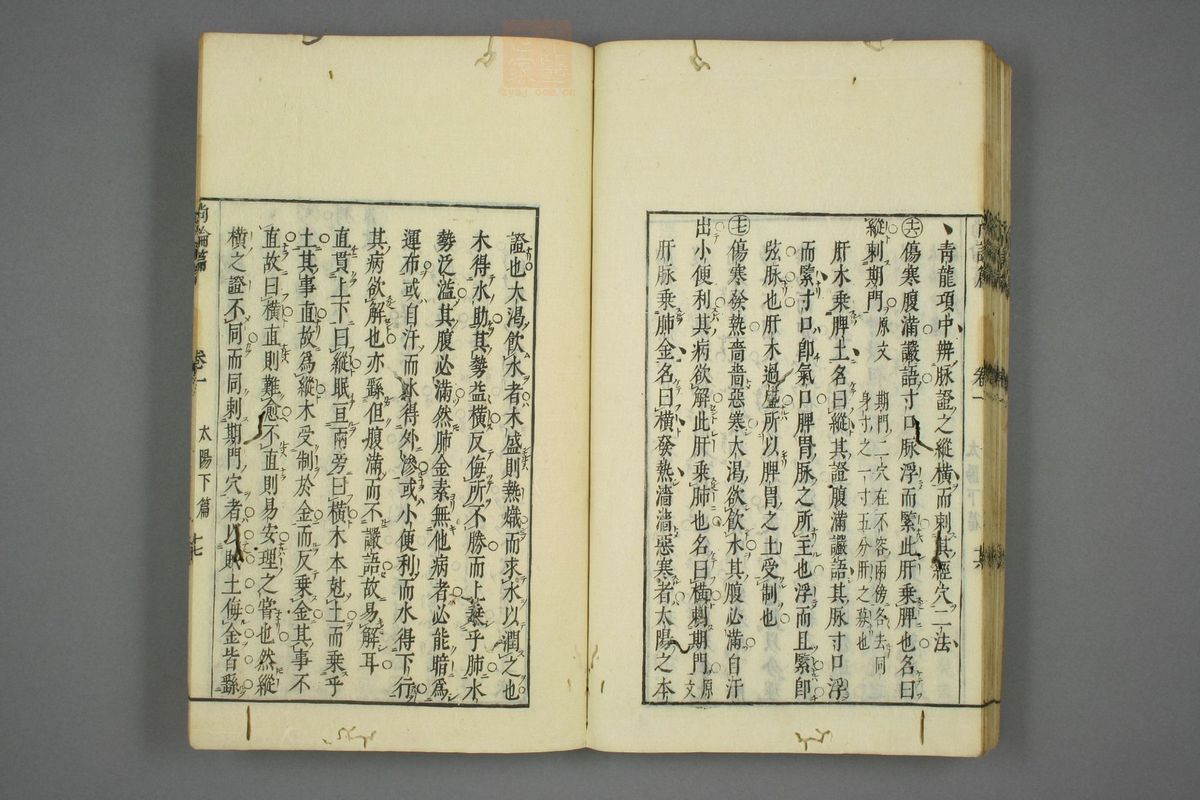 丶青龍項中辨脉證之縱橫而刺其經穴二法
㊅傷寒腹滿讝語寸口脉浮而緊此肝乘脾也名曰
縱刺期門原文 期門二穴在不容兩傍各去同身寸之一寸五分肝之募也
肝木乘脾土名曰縱其證腹滿讝語其脉寸口浮
而緊寸口卽氣口脾胃脉之所主也浮而且緊卽
弦脉也肝木過盛所以脾胃之土受制也
傷寒發熱嗇嗇惡寒大渴欲飮水其腹必滿自汗
出小便利其病欲解此肝乘肺也名曰橫刺期門原文
肝脉乘肺金名曰橫發熱濇濇惡寒者太陽之本
證也大渴飮水者木盛則熱熾而求水以潤之也
木得水助其勢益橫反侮所不勝而上乘乎肺水
勢泛濫其腹必滿然肺金素無他病者必能暗爲
運布或自汗而水得外滲或小便利而水得下行
其病欲解也亦繇但腹滿而不讝語故易解耳
直貫上下曰縱眠亘兩旁曰橫木本尅土而乘乎
土其事直故爲縱木受制於金而反乘金其事不
直故曰橫直則難愈不直則易安理之常也然縱
橫之證不同而同刺期門穴者以賊土侮金皆繇
尚論篇 卷一 太陽下篇 十七